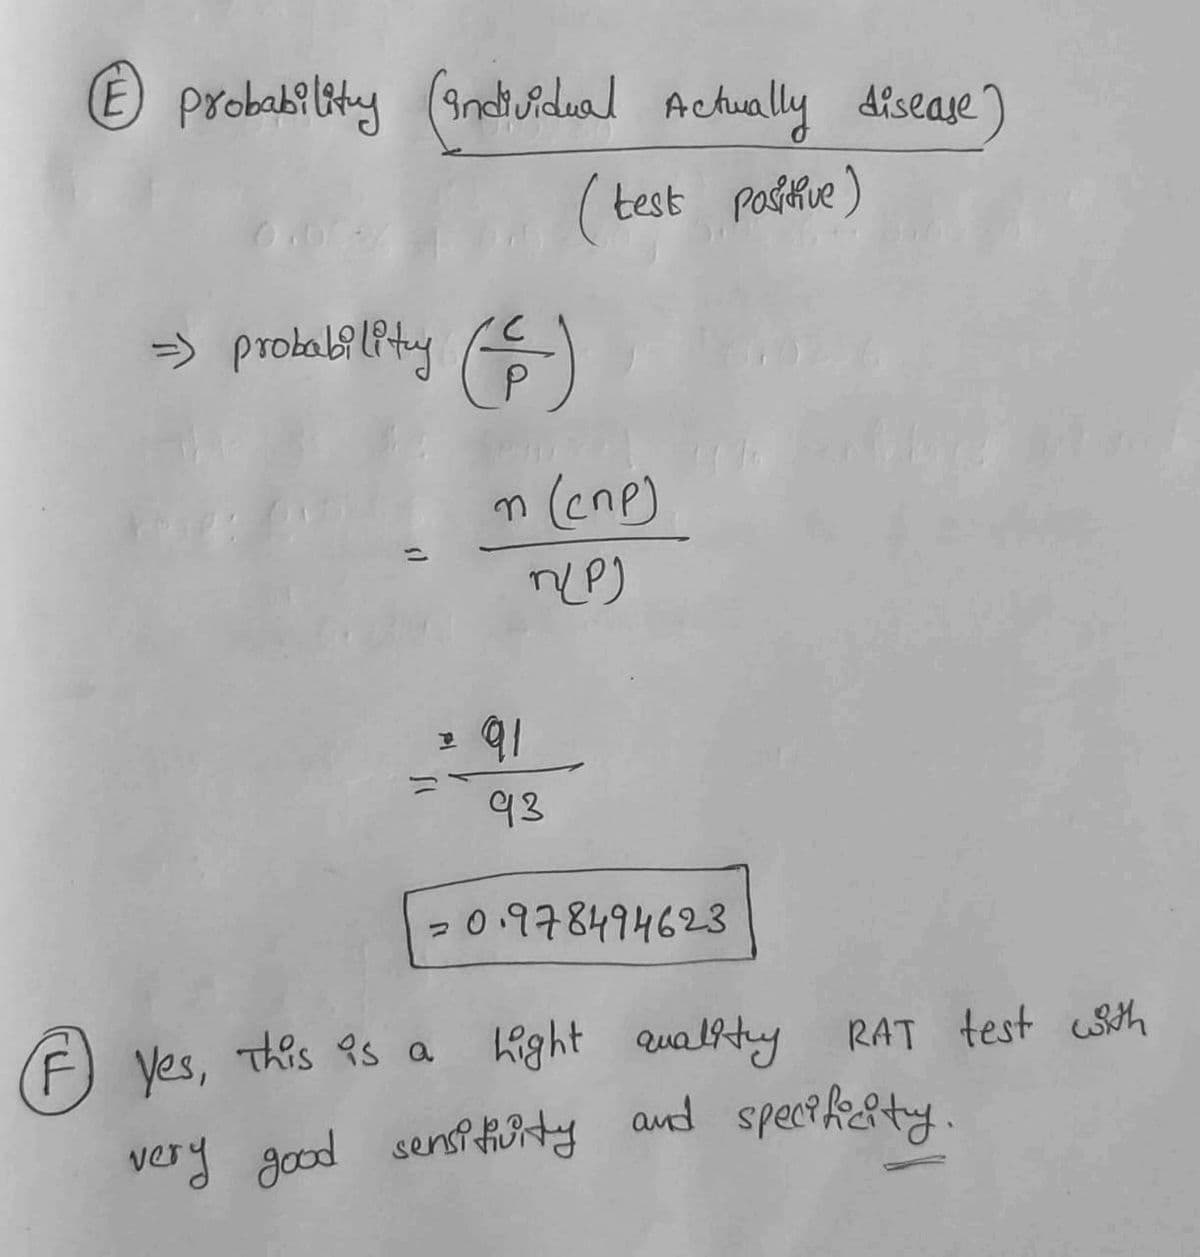 (E) probability (individual Actually disease)
(test positive)
=> probability (C
P)
n (C∩P)
=
n(P)
= 91
=
93
= 0.978494623
(F) Yes, This is a hight quality RAT test with
very good sensitivity and specificity.